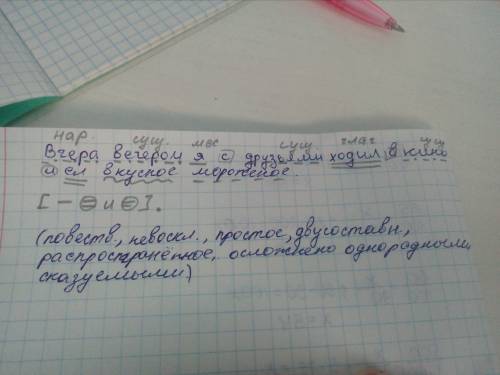 нар. сущ. мес сущ. глаг сущ
Вчера вечером я с друзьями ходил в кино
и ел вкусное мороженое.
[— = и =].
(повеств., невоскл., простое, двусоставн.,
распространённое, осложнено однорадными
сказуемыми)